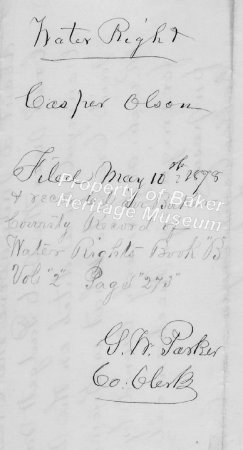 Water Right
Casper Olson
Filed May 10th 1878
& recorded in Baker
County Record of
Water Rights Book "B"
Vol "2" Page "273"
G. W. Parker
Co. Clerk
Property of Baker
Heritage Museum